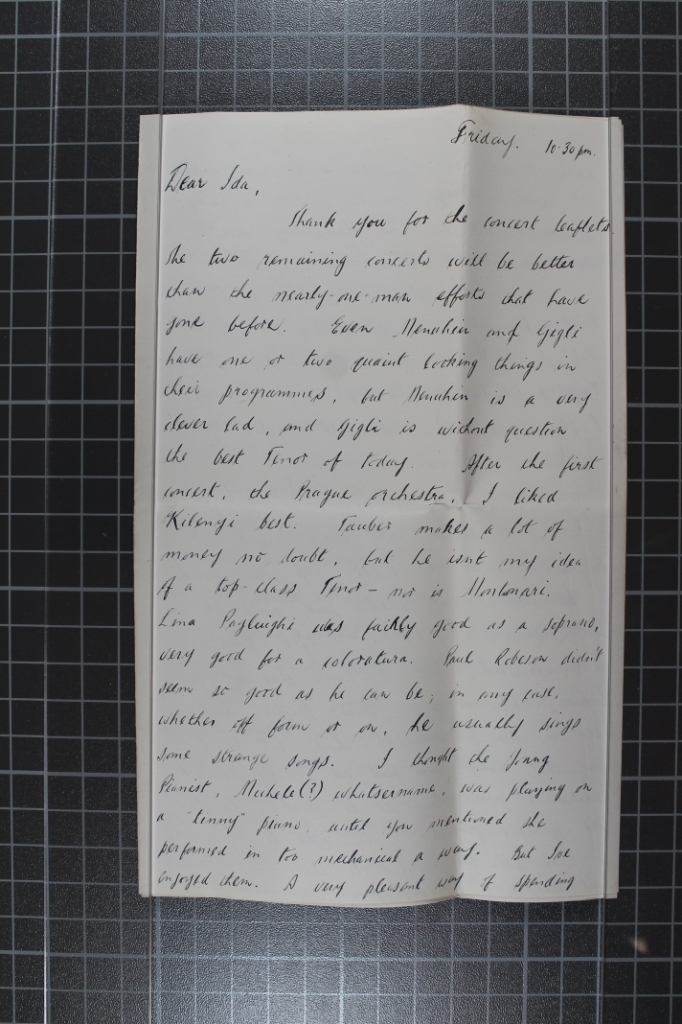 Friday. 10.30 pm.
Dear Ida,
Thank you for the concert leaflets.
The two remaining concerts will be better
than the nearly-one-man efforts that have
gone before. Even Menuhin and Gigli
have one or two quaint looking things in
their programmes, but Menuhin is a very
clever lad, and Gigli is without question
the best Tenor of today. After the first
concert, the Prague orchestra, I liked
Kilenyi best. Tauber makes a lot of
money no doubt, but he isnt my idea
of a top-class Tenor – nor is Montanari.
Lina Pagliughi was fairly good as a soprano,
very good for a coloratura. Paul Robeson didn't
seem so good as he can be; in any case,
whether off form or on, he usually sings
some strange songs. I thought the young
Pianist, Michele(?) whatsername, was playing on
a "tinny" piano, until you mentioned she
performed in too mechanical a way. But I've
enjoyed them. A very pleasant way of spending